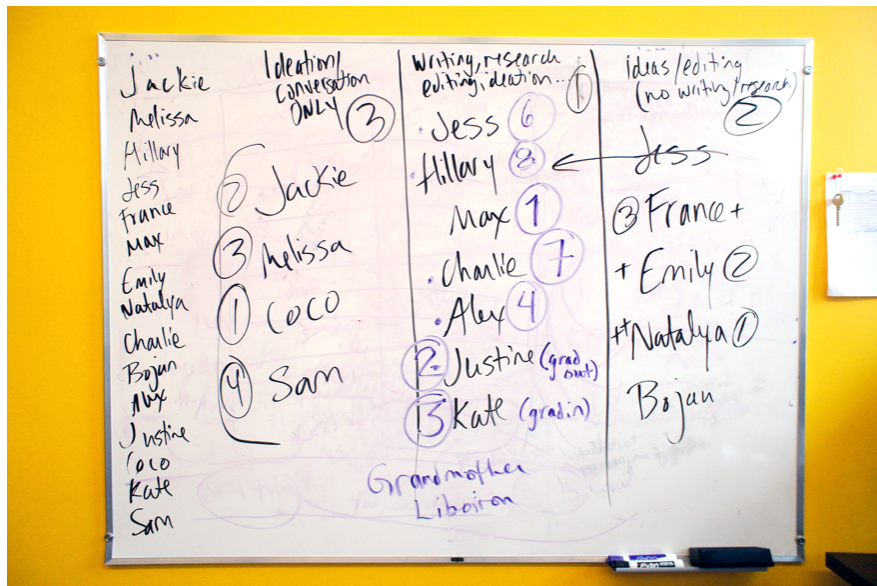 Jackie
Melissa
Hillary
Jess
France
Max
Emily
Natalya
Charlie
Bojun
Alex
Justine
Coco
Kate
Sam
Ideation/
conversation
ONLY
3
2 Jackie
3 Melissa
1 Coco
4 Sam
Writing, research
editing, ideation...
1
Jess 6
Hillary 8
Max 1
Charlie 7
Alex 4
2 Justine (grad
out)
Kate (grad in)
Grandmother
Liboiron
ideas/editing
(no writing/research)
2
Jess
3 France +
+ Emily 2
++ Natalya 1
Bojun